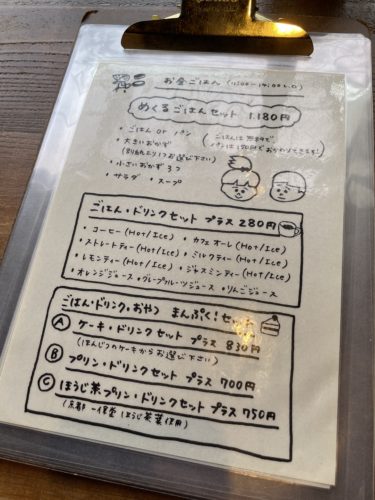 お昼ごはん (11:00-14:00 L.O)
めくるごはんセット 1,180円
・ごはん or パン
(ごはんは無料で、
パンは150円でおかわりできます!)
・大きいおかず
(別紙より1つお選び下さい)
・小さいおかず3つ
・サラダ ・スープ
ごはん・ドリンクセット プラス 280円
・コーヒー (Hot/Ice) ・カフェオーレ (Hot/Ice)
・ストレートティー (Hot/Ice) ・ミルクティー (Hot/Ice)
・レモンティー (Hot/Ice) ・ジャスミンティー (Hot/Ice)
・オレンジジュース ・グレープフルーツジュース ・りんごジュース
ごはん・ドリンク・おやつ まんぷく!セット
A ケーキ・ドリンクセット プラス 830円
(ほんじつのケーキからお選び下さい)
B プリン・ドリンクセット プラス 700円
C ほうじ茶プリン・ドリンクセット プラス 750円
(京都 一保堂 ほうじ茶葉使用)